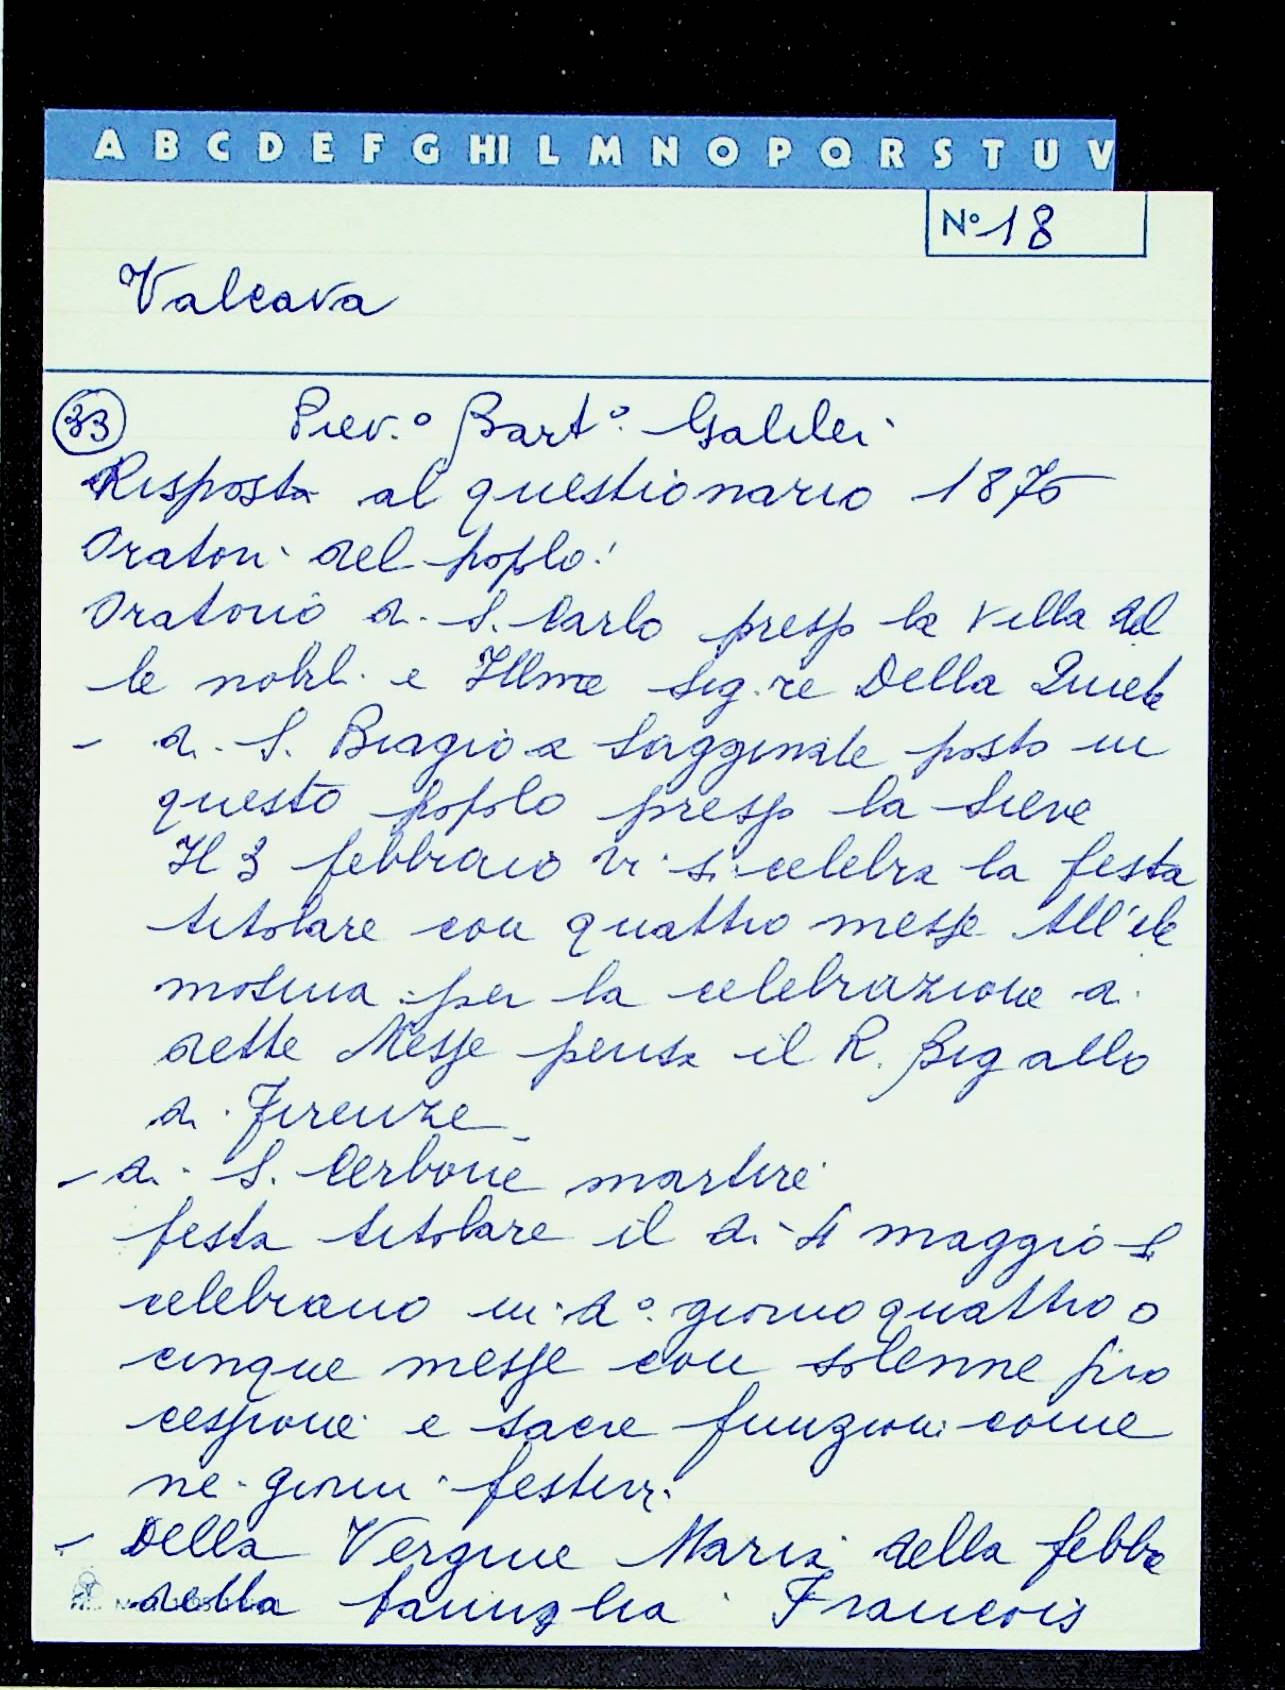 A B C D E F G HI L M N O P Q R S T U V
N° 18
Valcava
33 Piev.° Bart°. Galilei
Risposta al questionario 1875
Oratori del poplo:
Oratorio di S. Carlo presso la villa del
le nobili e Illme Sig.re Della Quiete
- di S. Biagio a Sagginale posto in
questo popolo presso la Sieve
Il 3 febbraio vi si celebra la festa
titolare con quattro messe All'ele
mosina per la celebrazione di
dette Messe pensa il R. Bigallo
di Firenze
- di S. Cerbone martire
festa titolare il dì 4 maggio Si
celebrano in d° giorno quattro o
cinque messe con solenne pro
cessione e sacre funzioni come
ne giorni festivi
- Della Vergine Maria della febbre
della famiglia Francois